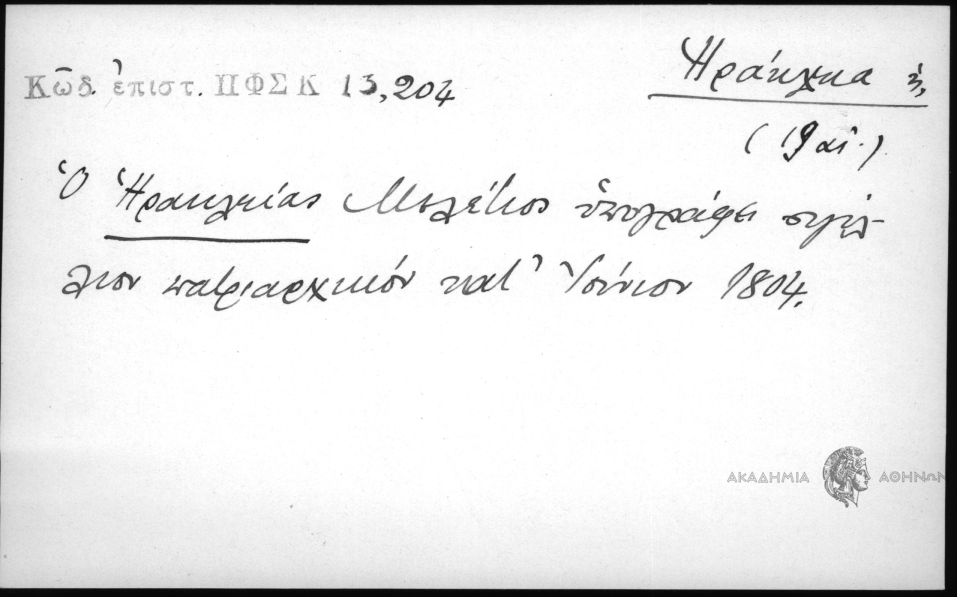 Κῶδ. ἐπιστ. ΠΦΣΚ 13,204
Ἡράκλεια ἡ,
(19 αἰ.)
Ὁ Ἡρακλείας Μελέτιος ὑπογράφει σιγίλ-
λιον πατριαρχικόν κατ' Ἰούνιον 1804.
ΑΚΑΔΗΜΙΑ ΑΘΗΝΩΝ